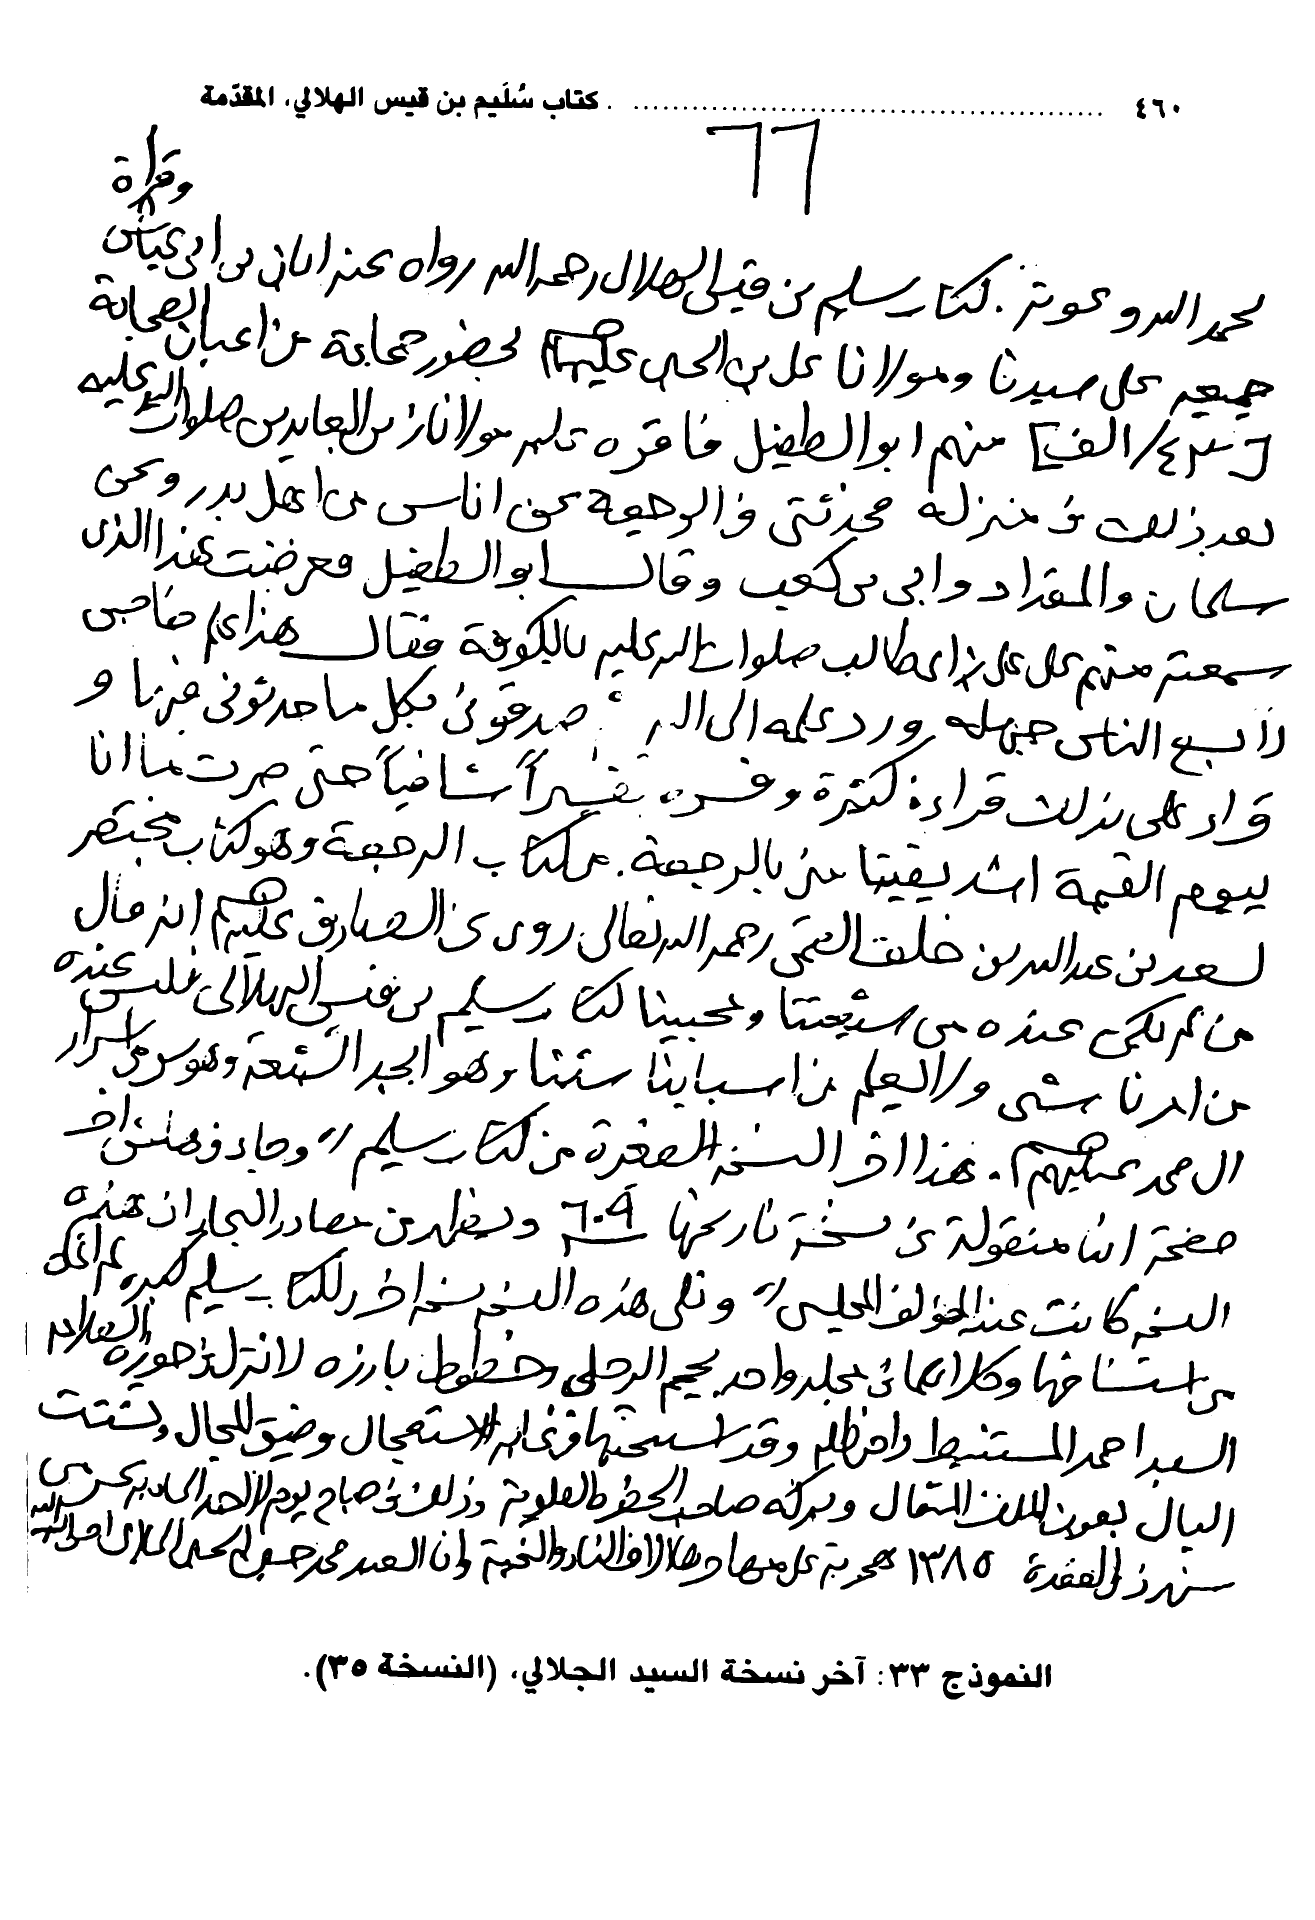 ٤٦٠ ........ كتاب سُلَيم بن قيس الهلالي، المقدّمة
٦٦
وقراه
بحمد الله وعونه. كتاب سليم بن قيس الهلالي رحمه الله رواه عنه ابان بن ابي عياش
جميعه على سيدنا ومولانا علي بن الحسين عليهما بحضور جماعة من اعيان الصحابة
[٤٣/الف] منهم ابو الطفيل فاقره عليه مولانا زين العابدين صلوات الله عليه
بعد ذلك في منزله فحدثني في الرجعة عن اناس من اهل بدر وعن
سلمان والمقداد وابي بن كعب وقال ابو الطفيل فعرضت هذا الذي
سمعته منهم على علي بن ابي طالب صلوات الله عليه بالكوفة فقال هذا علم خاص
لا يسع الناس جهله ورد علمه الى الله صدقوني بكل ما حدثوني فيها و
قراء على بذلك قراءة كثيرة وفسره تفسيراً شافياً حتى صرت ما انا
بيوم القيمة اشد يقينا مني بالرجعة. من كتاب الرجعة وهو كتاب مختصر
لسعد بن عبد الله بن خلف القمي رحمه الله تعالى روى عن الصادق عليهم انه قال
من لم يكن عنده من شيعتنا ومحبينا كتاب سليم بن قيس الهلالي فليس عنده
من امرنا شي ولا يعلم من اسبابنا شيئا وهو ابجد الشيعة وهو سر من اسرار
ال محمد عليهم. هذا اخر النسخة الصغرة من كتاب سليم" وجاء في هامش اخر
صفحة انها منقولة عن نسخة تاريخها ٦٠٩ ويظهر من مصادر البحار ان هذه
النسخه كانت عند المؤلف المجلسي" وتلي هذه النسخه نسخه اخر لكتاب سليم كبيره لم اتمكن
من استنساخها وكلاهما في مجلد واحد بحجم الرحلي وخطوط بارزه لا تزال في حوزة العلامه
السيد احمد المستنبط دام ظله وقد استنسختها في غاية الاستعجال وضيق المجال وتشتت
البال بعون الملك المتعال وبركة صاحب الحضرة العلوية وذلك في صباح يوم الاحد الحادي عشر من
شهر ذي القعدة ١٣٨٥ هجرية على مهاجرها الاف الثناء والتحية وانا العبد محمد حسين الحسيني الجلالي
النموذج ٣٣: آخر نسخة السيد الجلالي، (النسخة ٣٥).